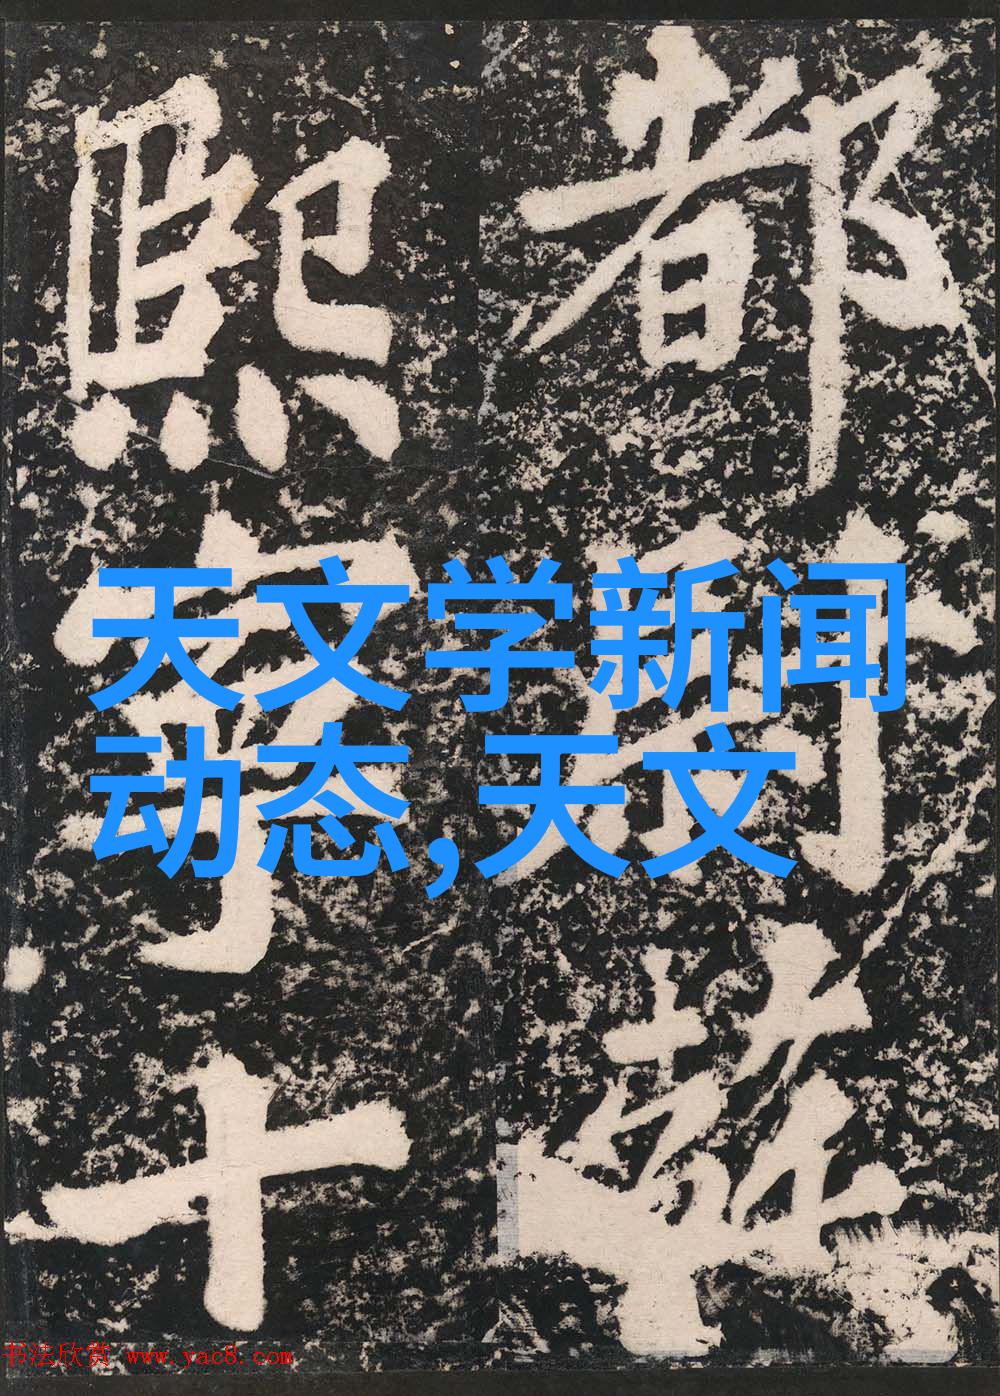 都尉蘇
熙寧十
天文学新闻
动态,天文
书法欣赏 www.yac8.com